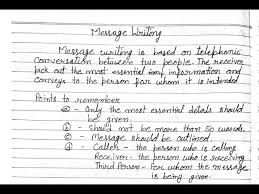 Message Writing
Message writing is based on telephonic
conversation between two people. The receiver
pick out the most essential information and
convey to the person for whom it is intended.
Points to remember
a - Only the most essential details should
be given.
b - Should not be more than 50 words.
c - Message should be outlined.
d - Caller - the person who is calling
Receiver - the person who is receiving
Third Person - For whom the message
is being given.